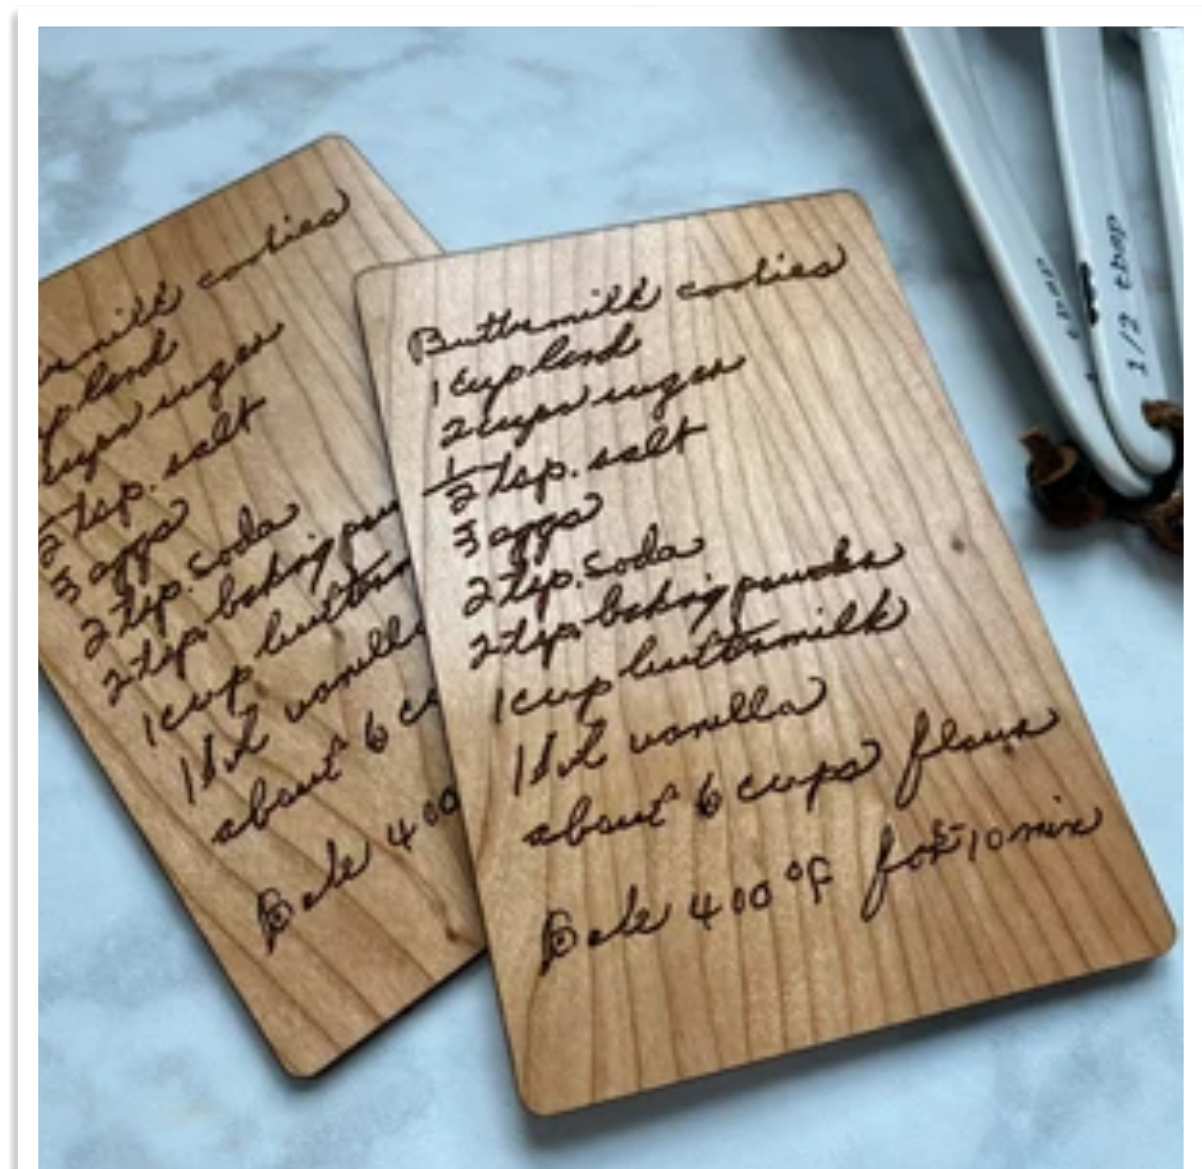 ermilk cookies
p lard
cups sugar
2 tsp. salt
3 eggs
2 tsp. soda
2 tsp. baking pow
1 cup butterm
vanill
about 6 cu
Bake 400
Buttermilk cookies
1 cup lard
2 cups sugar
1/2 tsp. salt
3 eggs
2 tsp. soda
2 tsp. baking powder
1 cup buttermilk
vanilla
about 6 cups flour
Bake 400 °F for 10 min
1/2 tbsp